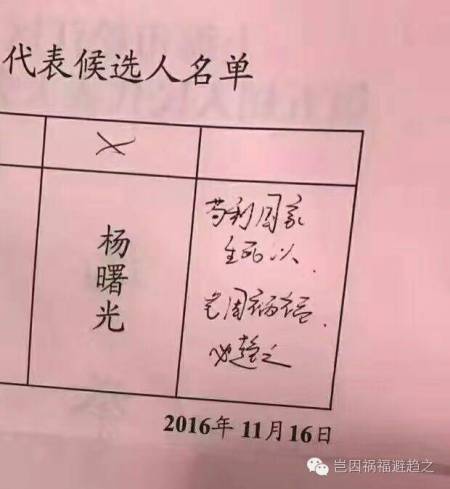 代表候选人名单
×
杨曙光
苟利国家
生死以
岂因祸福
避趋之
2016年 11月16日
岂因祸福避趋之